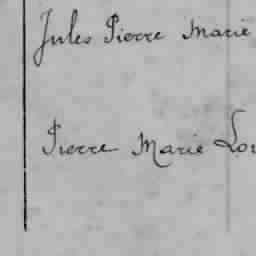 Jules Pierre Marie
Pierre Marie